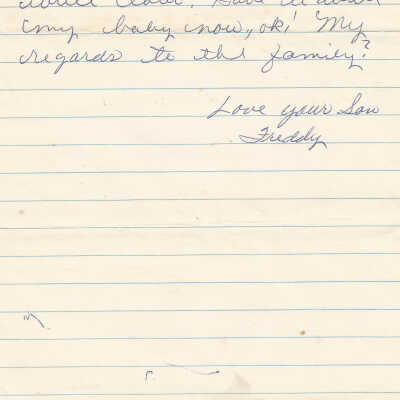 my baby now, ok! My
regards to the family?
Love your Son
Freddy